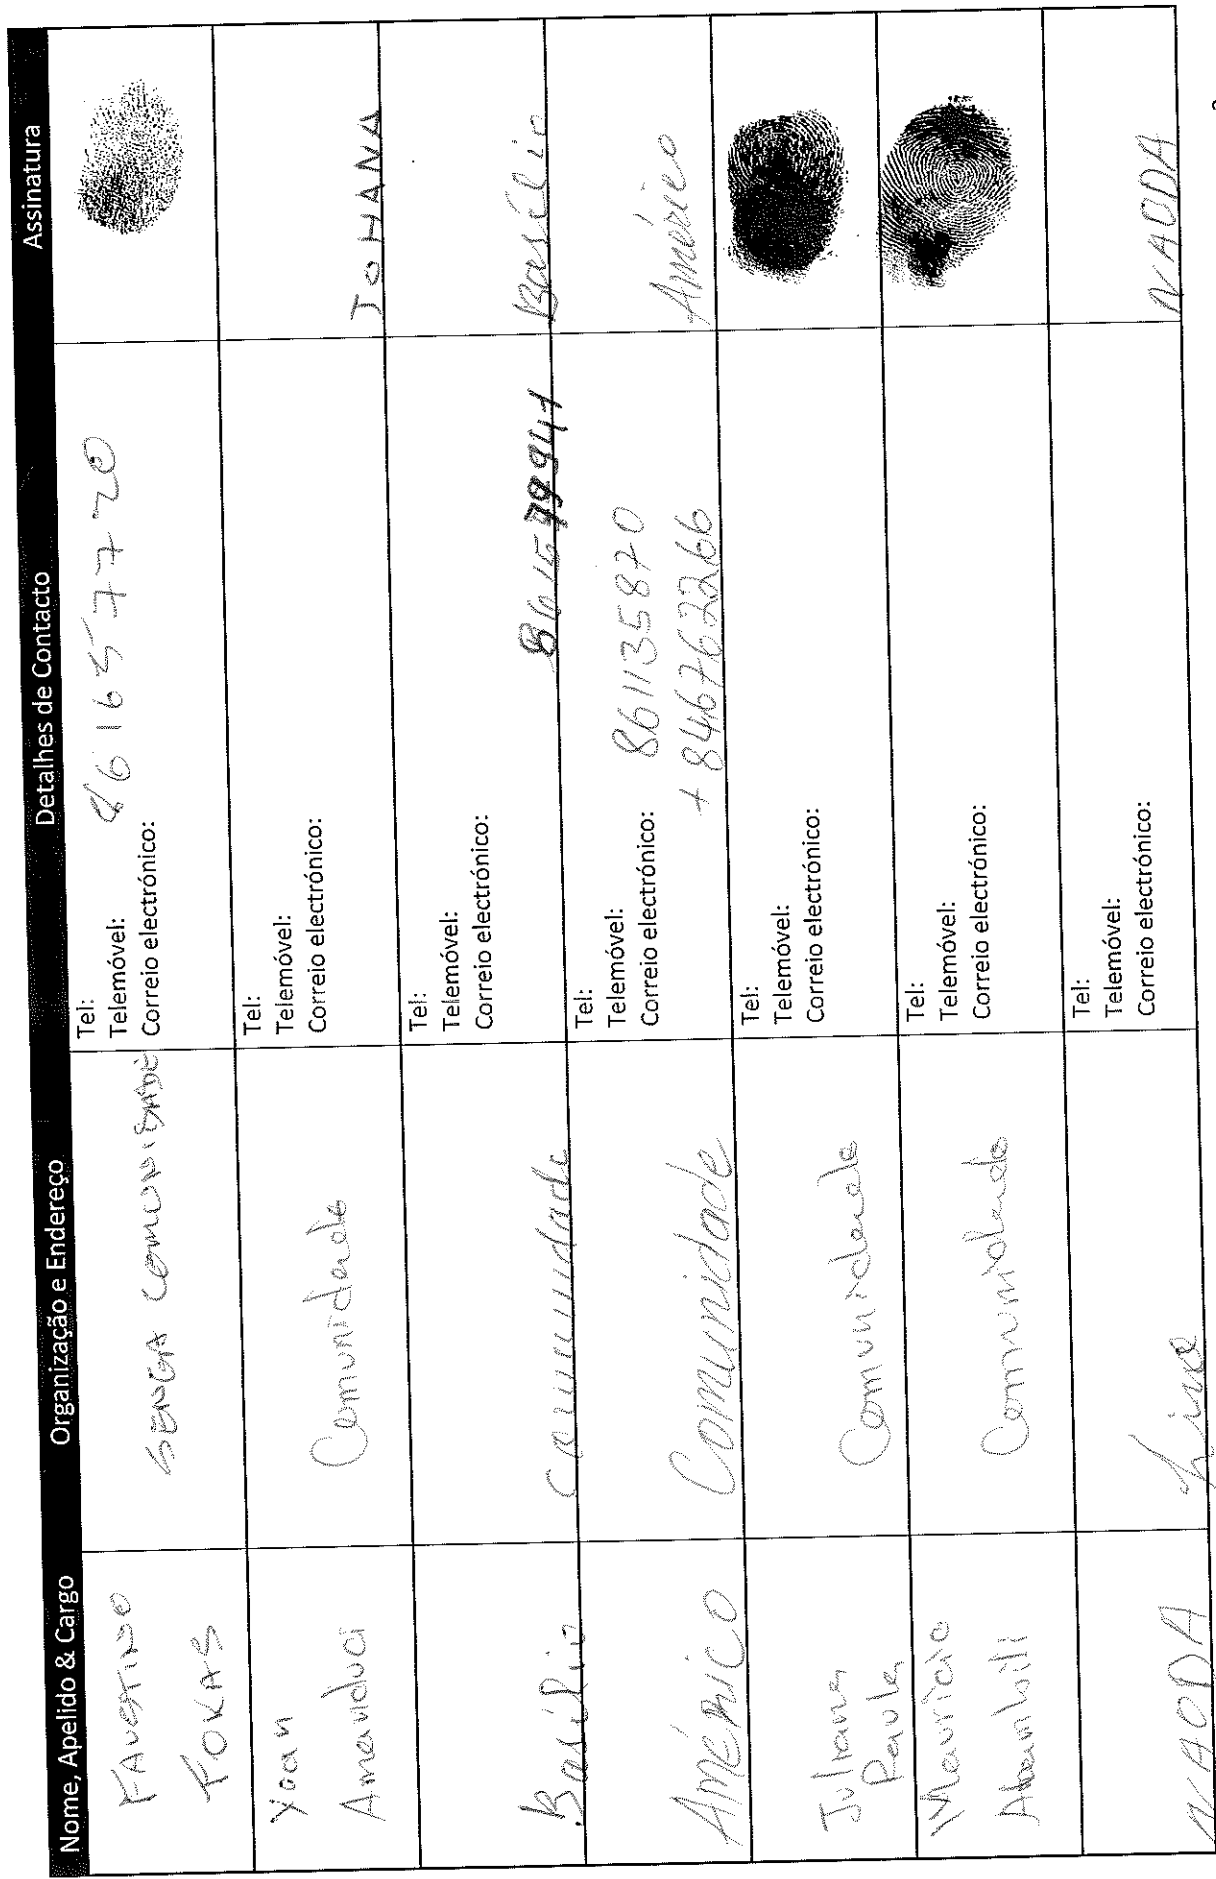 Nome, Apelido & Cargo Organização e Endereço Detalhes de Contacto Assinatura
FAUSTINO
FOKAS
SENGA COMUNIDADE
Tel:
Telemóvel: 861657720
Correio electrónico:
Yoan
Amanduci
Comunidade
Tel:
Telemóvel:
Correio electrónico:
JOHANA
Basílio
Comunidade
Tel:
Telemóvel:
Correio electrónico:
Basílio
Américo
Comunidade
Tel:
Telemóvel: 861135870
Correio electrónico: + 846762266
Américo
Juliana
Paula
Comunidade
Tel:
Telemóvel:
Correio electrónico:
Mauricio
Comunidade
Tel:
Telemóvel:
Correio electrónico:
NAODA
Tel:
Telemóvel:
Correio electrónico:
NAODA